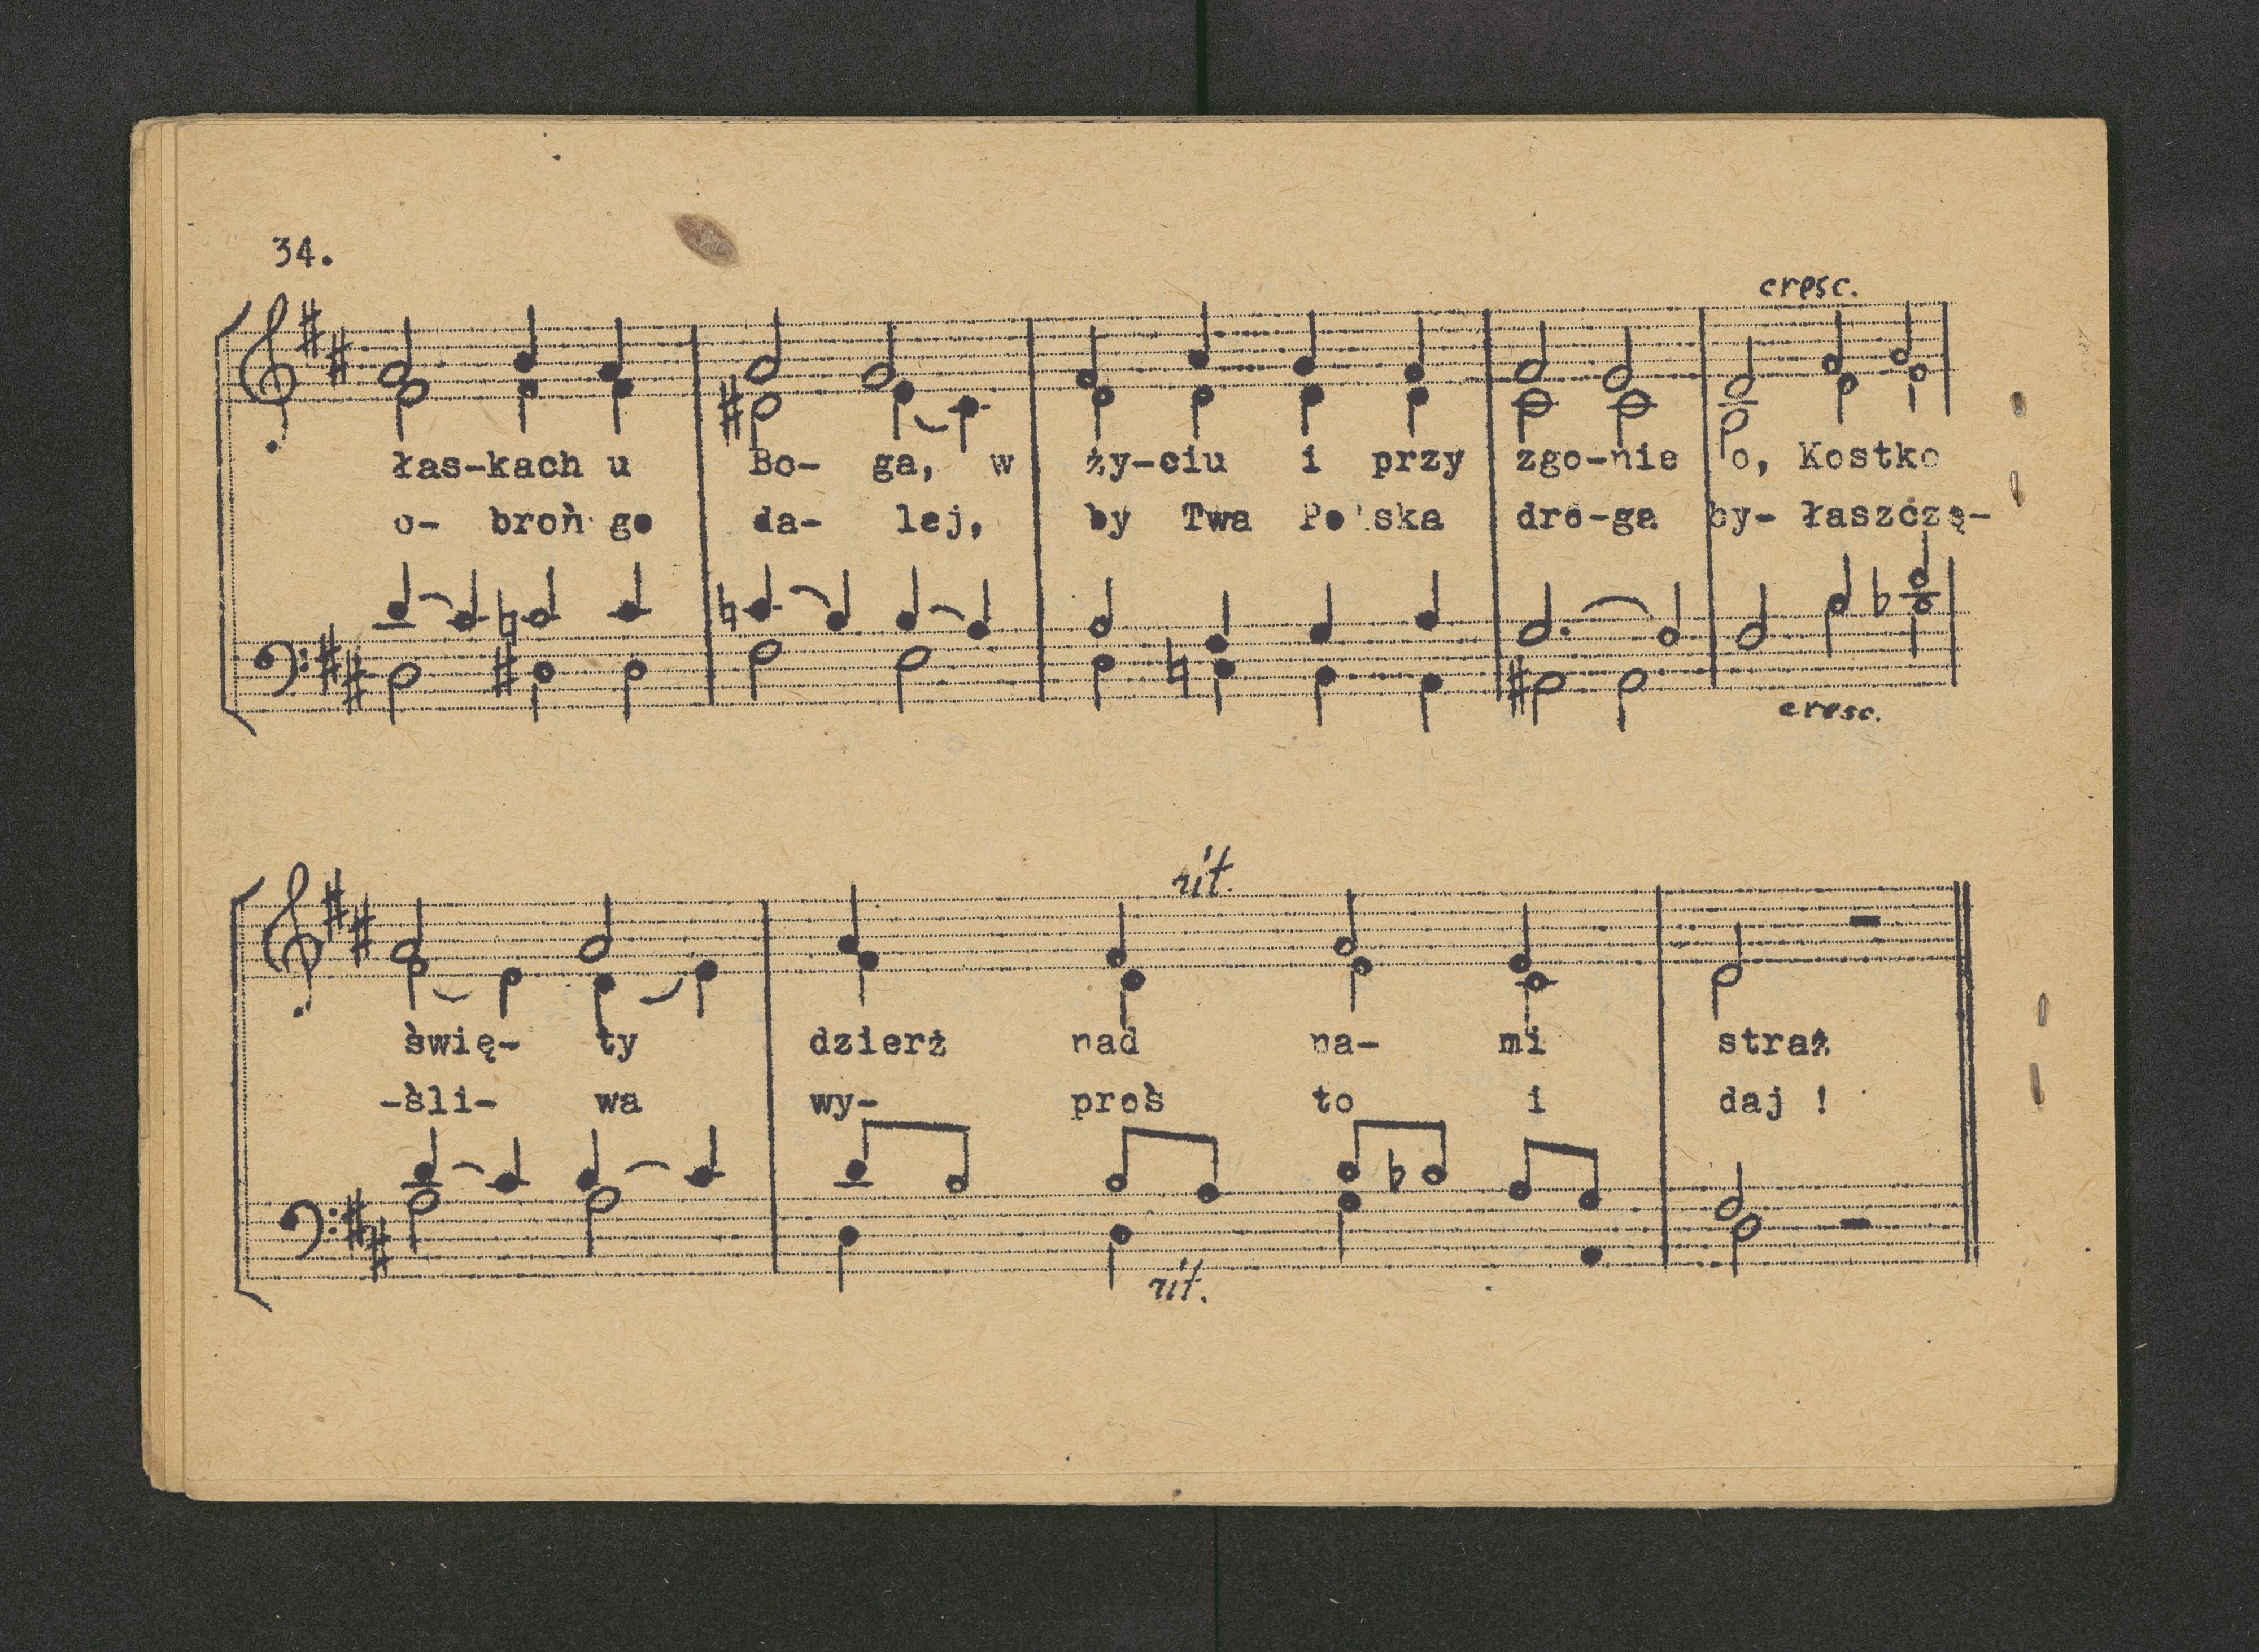 34.
cresc.
łas-kach u Bo- ga, w ży-ciu i przy zgo-nie o, Kostko
o- broń go da- lej, by Twa Polska dro-ga by- łaszczę-
cresc.
rit.
świę- ty dzierż nad na- mi straż
-śli- wa wy- proś to i daj !
rit.